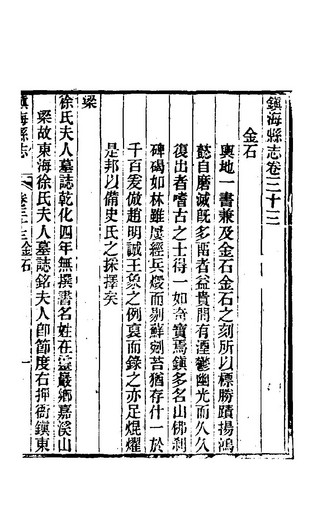 鎮海縣志卷三十三
金石
輿地一書兼及金石金石之刻所以標勝蹟揚鴻
懿自磨滅旣多而者益貴間有湮鬱幽光而久久
復出者嗜古之士得一如奇寶焉鎮多名山佛刹
碑碣如林雖屢經兵燹而剔蘚剜苔猶存什一於
千百爰倣趙明誠王象之例裒而錄之亦足焜燿
是邦以備史氏之採擇矣
梁
徐氏夫人墓誌乾化四年無撰書名姓在靈巖鄉嘉溪山
梁故東海徐氏夫人墓誌銘夫人卽節度右押衙鎮東
鎮海縣志
卷三十三金石
一